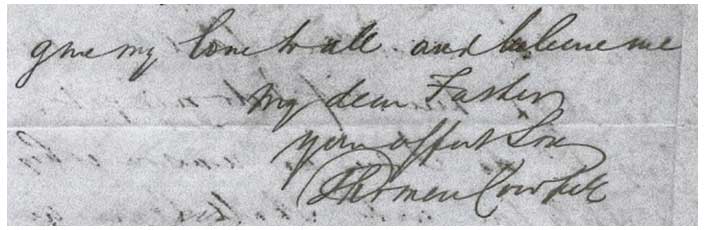 give my love to all and believe me
my dear Father
your affect Son
Thomas